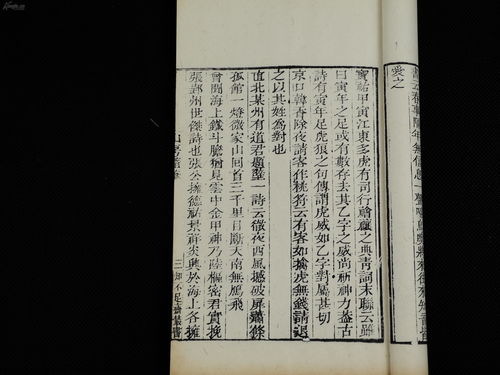 愛之
寶祐甲寅江東多虎有司行禬禳之典青詞末聯云雖
曰寅年之足或有數存去其乙字之威尚祈神力蓋古
詩有寅年足虎狼之句傳謂虎威如乙字對屬甚切
京口韓香除夜請客作桃符云有客如擒虎無錢請退
之以其姓為對也
直北某州有道君題壁一詩云徹夜西風撼破扉蕭條
孤館一燈微家山回首三千里目斷天南無鴈飛
曾聞海上鐵斗膽猶見雲中金甲神乃陸樞密君實挽
張郢州世傑詩也張公擁德祐景祥炎興於海上各擁
三 知不足齋叢書